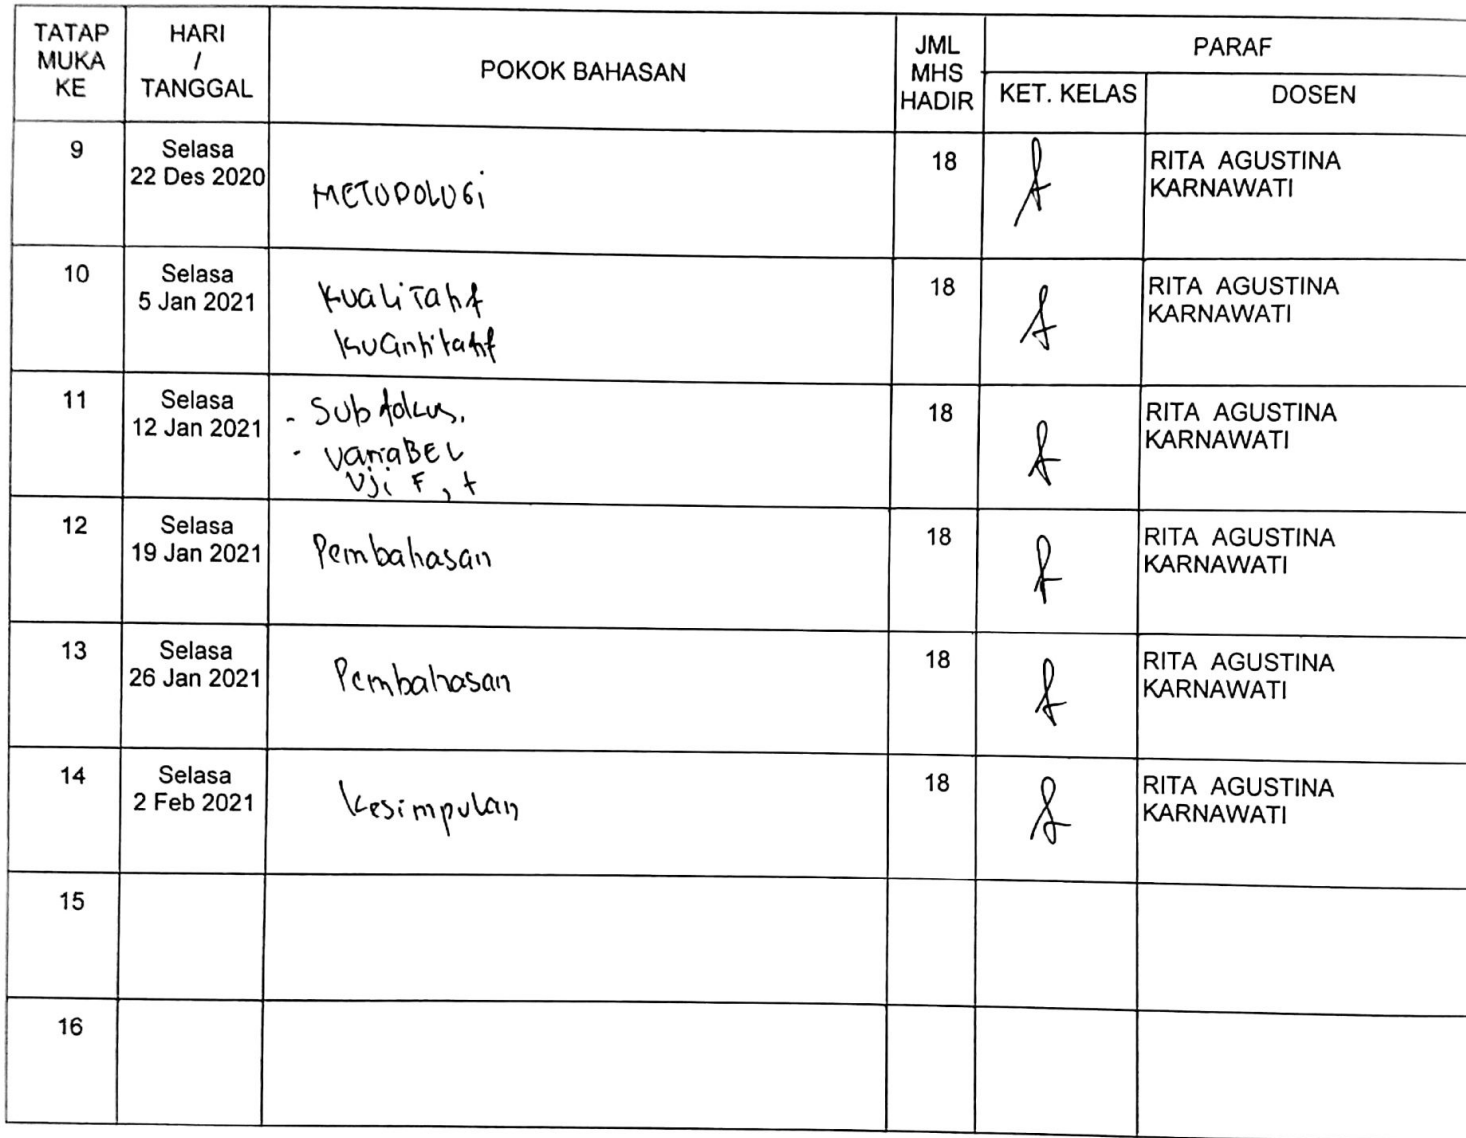 TATAP MUKA KE
HARI / TANGGAL
POKOK BAHASAN
JML MHS HADIR
PARAF
KET. KELAS
DOSEN
9
Selasa
22 Des 2020
METODOLOGi
18
RITA AGUSTINA
KARNAWATI
10
Selasa
5 Jan 2021
Kualitatif
kuantitatif
18
RITA AGUSTINA
KARNAWATI
11
Selasa
12 Jan 2021
- Subfokus.
- VariaBEL
Uji F, t
18
RITA AGUSTINA
KARNAWATI
12
Selasa
19 Jan 2021
Pembahasan
18
RITA AGUSTINA
KARNAWATI
13
Selasa
26 Jan 2021
Pembahasan
18
RITA AGUSTINA
KARNAWATI
14
Selasa
2 Feb 2021
Kesimpulan
18
RITA AGUSTINA
KARNAWATI
15
16